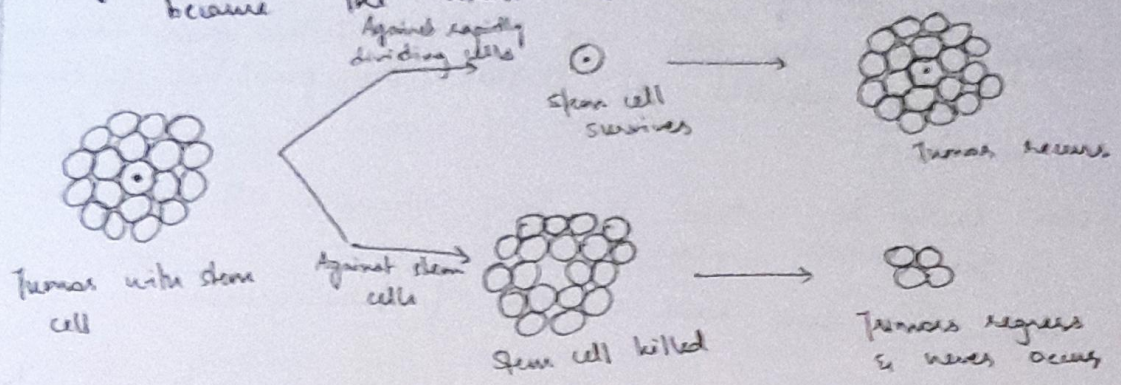 because the
Against rapidly
dividing cells
Stem cell
survives
Tumor recurs
Tumor with stem
cell
Against stem
cells
Stem cell killed
Tumors regress
& never occurs